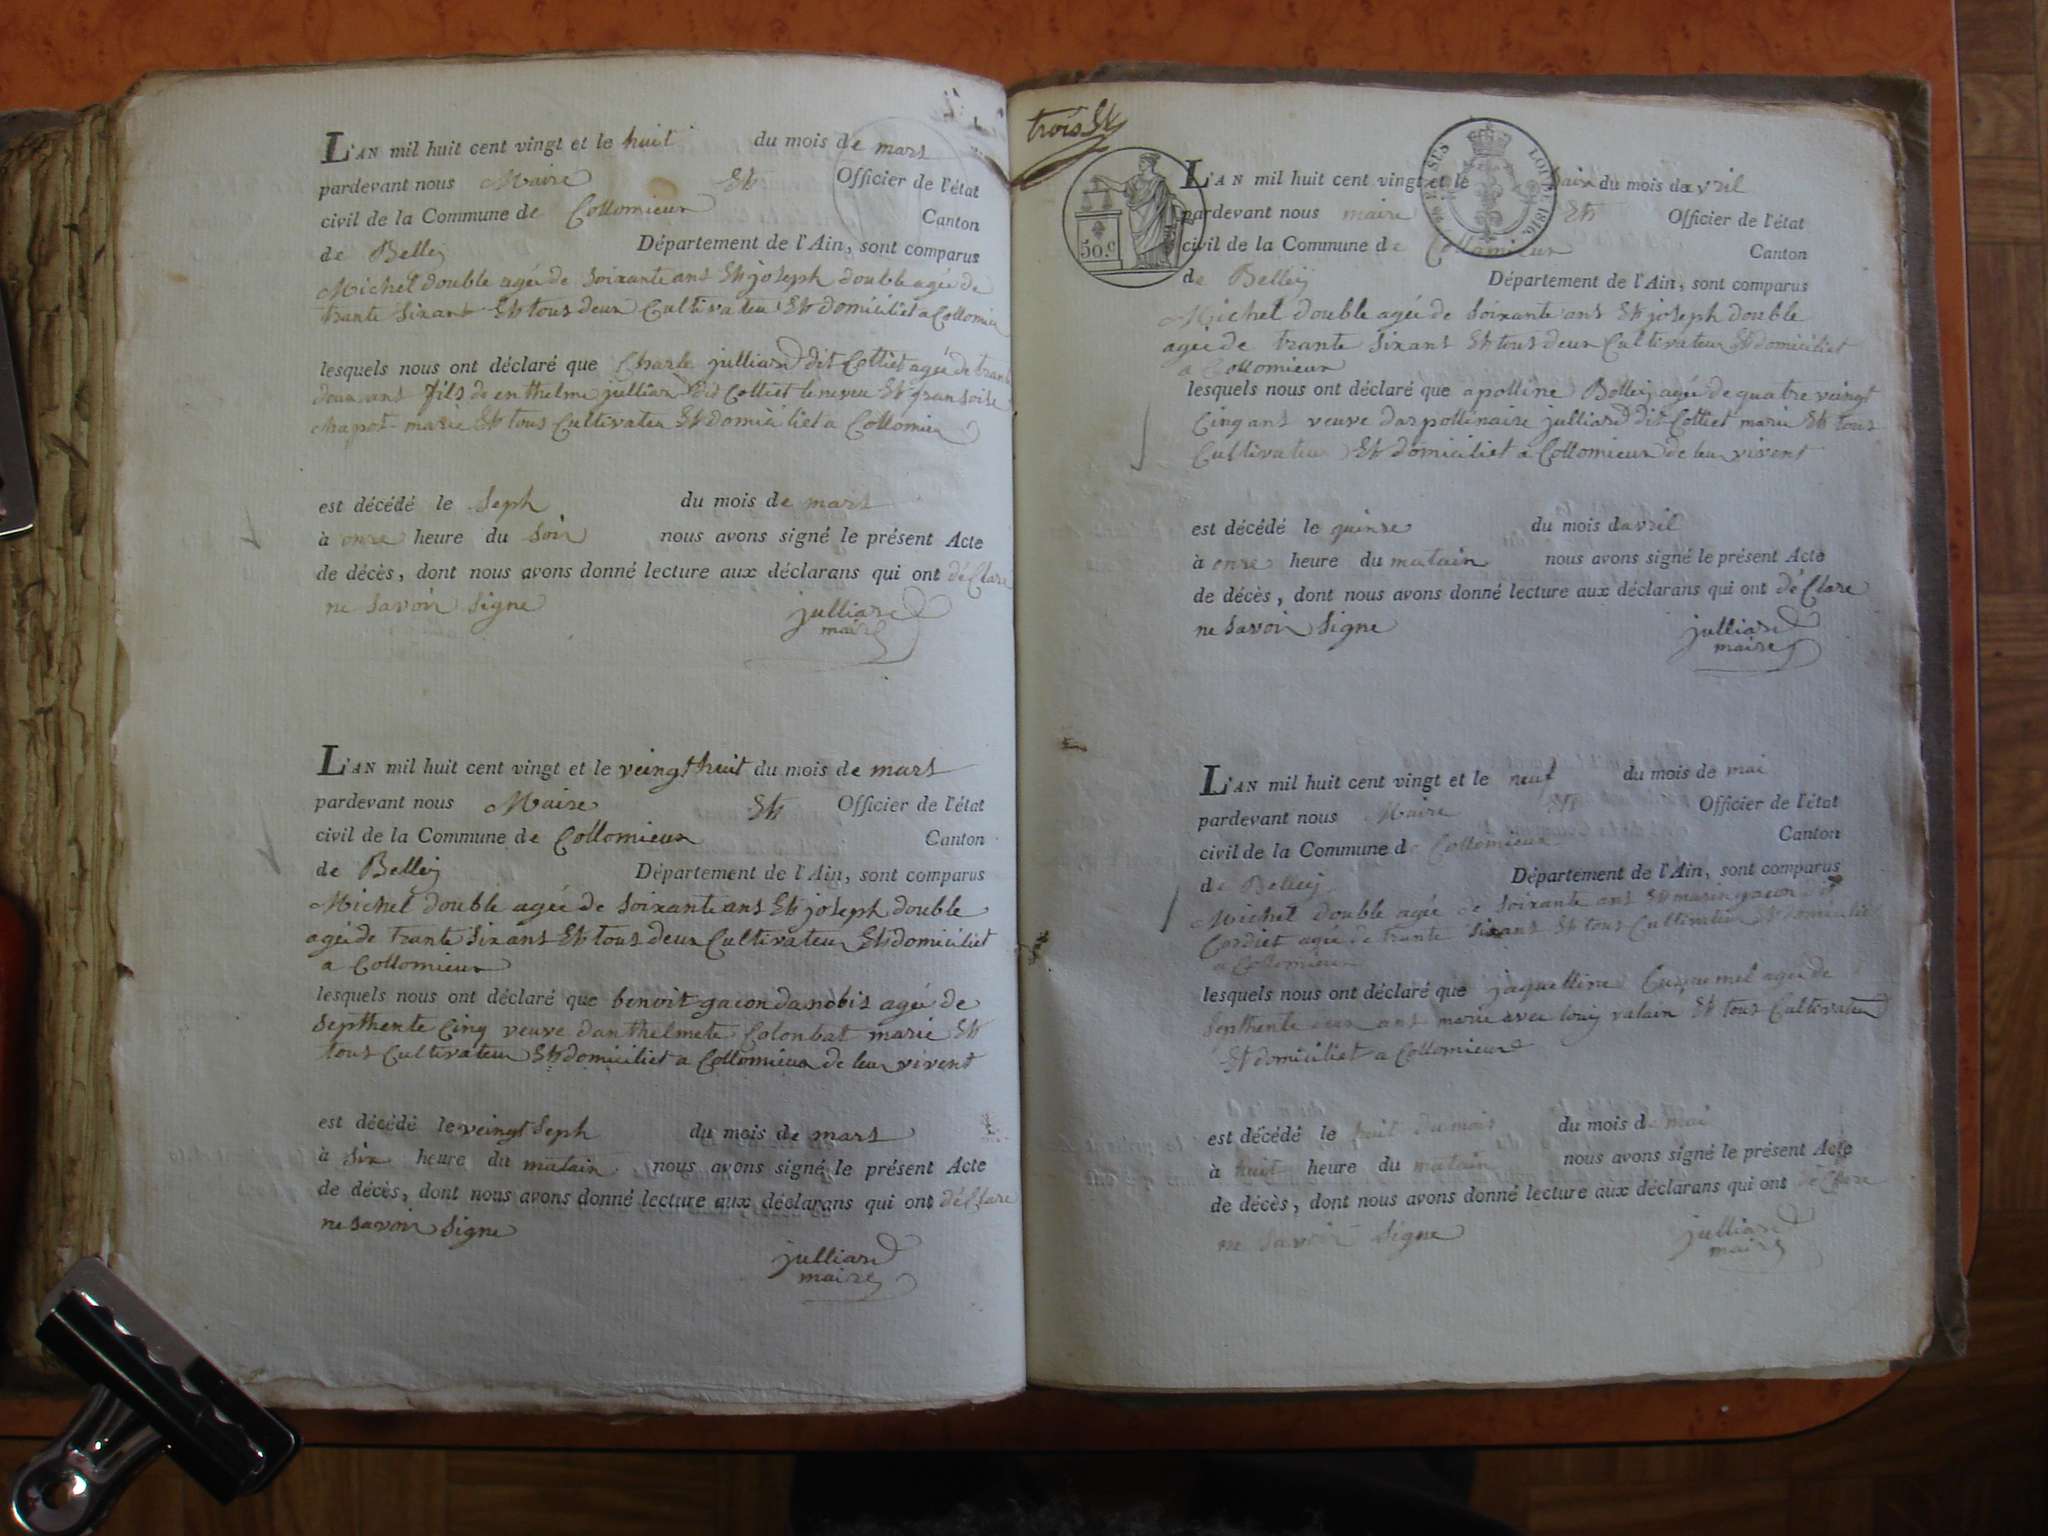 L'AN mil huit cent vingt et le huit du mois de mars
pardevant nous Maire Et Officier de l'état
civil de la Commune de Collomieux Canton
de Belley Département de l'Ain, sont comparus
Michel double agée de soixante ans Et joseph double agée de
trante sixans Et tous deux Cultivateu Et domiciliet a Collomieu
lesquels nous ont déclaré que Charle julliard dit Colliet agée de trante
deux ans fils de enthelme julliard dit Colliet le neveu Et fransoise
chapot marie Et tous Cultivateu Et domiciliet a Collomieu
est décédé le Seph du mois de mars
à onze heure du Soir nous avons signé le présent Acte
de décès, dont nous avons donné lecture aux déclarans qui ont déClare
ne savoir signe julliard
maire
L'AN mil huit cent vingt et le veingt huit du mois de mars
pardevant nous Maire Et Officier de l'état
civil de la Commune de Collomieux Canton
de Belley Département de l'Ain, sont comparus
Michel double agée de soixante ans Et joseph double
agée de trante sixans Et tous deux Cultivateux Et domiciliet
a Collomieux
lesquels nous ont déclaré que benoit gacon danobis agée de
septhente Cinq veuve danthelmete Colonbat marie Et
tous Cultivateux Et domiciliet a Collomieux de leux vivent
est décédé le veingt Seph du mois de mars
à six heure du matain nous avons signé le présent Acte
de décès, dont nous avons donné lecture aux déclarans qui ont déClare
ne savoir signe
julliard
maire
trois Et
50.c
LOI DE 1816.
L'AN mil huit cent vingt et le du mois davril
pardevant nous maire Et Officier de l'état
civil de la Commune de Collomieux Canton
de Belley Département de l'Ain, sont comparus
Michel double agée de soixante ans Et joseph double
agée de trante sixans Et tous deux Cultivateux Et domiciliet
a Collomieux
lesquels nous ont déclaré que apolline Bolley agée de quatre veingt
Cinq ans veuve daspollinaire julliard dit Colliet marie Et tous
Cultivateux Et domiciliet a Collomieux de leu vivent
est décédé le quinze du mois davril
à onze heure du matain nous avons signé le présent Acte
de décès, dont nous avons donné lecture aux déclarans qui ont déClare
ne savoir signe julliard
maire
L'AN mil huit cent vingt et le neuf du mois de mai
pardevant nous Maire Et Officier de l'état
civil de la Commune de Collomieux Canton
de Belley Département de l'Ain, sont comparus
Michel double agée de soixante ans Et marin gacon
Cordiet agée de trante sixans Et tous Cultivateux Et domiciliet
a Collomieux
lesquels nous ont déclaré que jaquelline agée de
septhente ans marie avec louis valain Et tous Cultivateux
Et domiciliet a Collomieux
est décédé le huit du mois du mois de mai
à huit heure du matain nous avons signé le présent Acte
de décès, dont nous avons donné lecture aux déclarans qui ont déClare
ne savoir signe julliard
maire